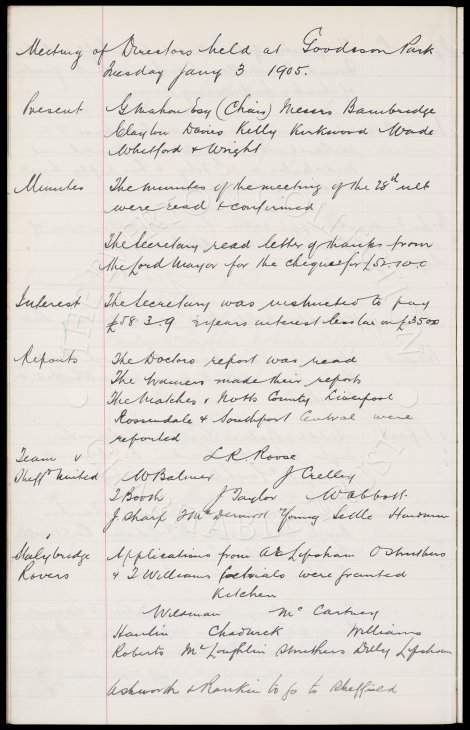 Meeting of Directors held at Goodison Park
Tuesday Jany 3 1905.
Present G Mahon Esq (Chair) Messrs Bainbridge
Clayton Davies Kelly Kirkwood Wade
Whitford & Wright
Minutes The minutes of the meeting of the 28th ult
were read & confirmed
The Secretary read letter of thanks from
the Lord Mayor for the cheque for £52-10-0
Interest The Secretary was instructed to pay
£58.3.9 years interest less tax on £3500
Reports The Doctors report was read
The trainers made their reports
The Matches v Notts County Liverpool
Rossendale & Southport Central were
reported
Team v L.R. Roose
Sheffd United W Balmer J Crelley
T Booth J Taylor W Abbott
J Sharp T McDermott Young Settle Hardman
Stalybridge Applications from A E Lipsham O Struthers
Rovers & T Williams for trials were granted
Kitchen
Wildman McCartney
Hanlin Chadwick Williams
Roberts McLoughlin Struthers Dilly Lipsham
Ashworth & Rankin to go to Sheffield